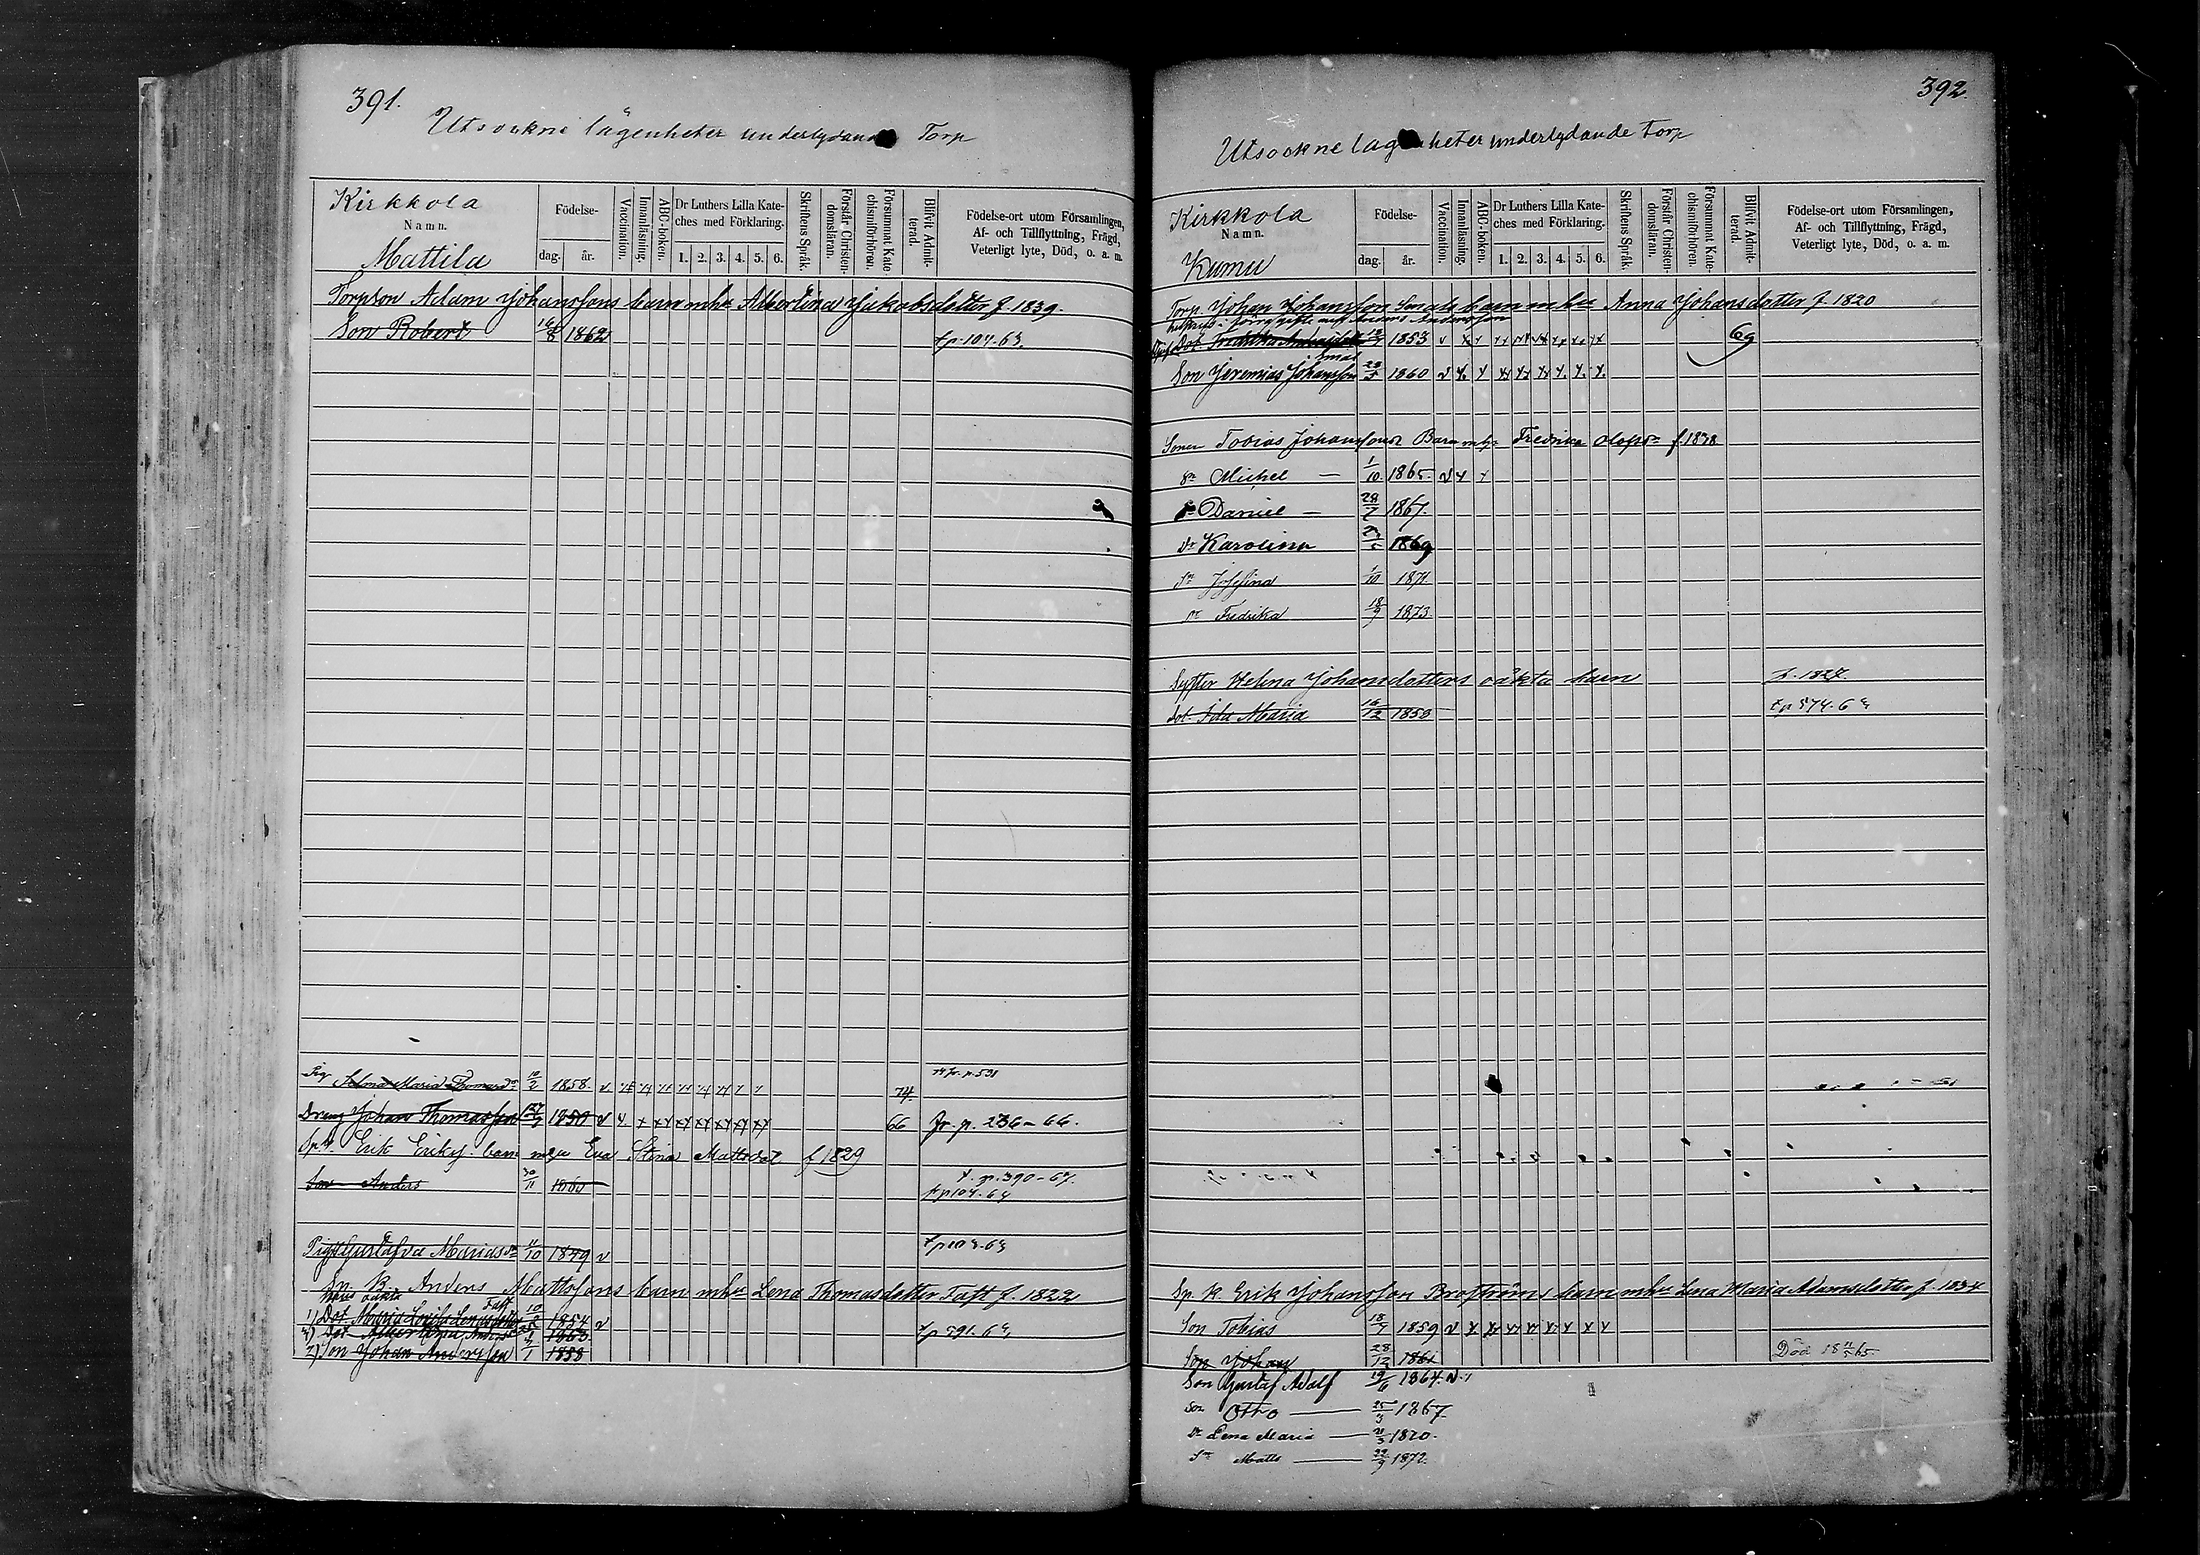 391.
Utsockne lägenheter underlydande Torp
Kirkkola
Namn.
Mattila
Födelse-
dag. år.
Vaccination.
Innanläsning.
ABC-boken.
Dr Luthers Lilla Kate-
ches med Förklaring.
1. 2. 3. 4. 5. 6.
Skriftens Språk.
Förstår Christen-
domsläran.
Försummat Kate-
chismiförhören.
Blifvit Admit-
terad.
Födelse-ort utom Församlingen,
Af- och Tillflyttning, Frägd,
Veterligt lyte, Död, o. a. m.
Torpson Adam Johanssons barn mhu Albertina Jakobsdotter f. 1839.
Son Robert 16/8 1862 tp. 104-63.
Maria Thomasdr 10/2 1858. v 74 fr. p. 591
Dreng Johan Thomasson 27/7 1850 v 66 fr. p. 236-66.
Erik Eriks. barn m hu Eva Stina Mattsdot f 1829
Son Anders 30/11 1860 t. p. 390-67.
tp 104-64
Pig. Gustafva Mariasdr 11/10 1849 v
Anders Mattssons barn mhu Lena Thomasdotter Taft f. 1822
hans oäkta Taft
1) Dot. Maria Lovisa 10/2 1854 v tp 591.
3) Dot Albertina 1863
2) Son Johan Andersson 1/1 1858
392.
Utsockne lägenheter underlydande Torp
Kirkkola
Namn.
Kumu
Födelse-
dag. år.
Vaccination.
Innanläsning.
ABC-boken.
Dr Luthers Lilla Kate-
ches med Förklaring.
1. 2. 3. 4. 5. 6.
Skriftens Språk.
Förstår Christen-
domsläran.
Försummat Kate-
chismiförhören.
Blifvit Admit-
terad.
Födelse-ort utom Församlingen,
Af- och Tillflyttning, Frägd,
Veterligt lyte, Död, o. a. m.
Torp. Johan Johansson Smals barn m hu Anna Johansdotter f. 1820
Dot. Fredrika 1853 v 69
Smal
Son Jeremias Johansson 23/5 1860 v
Sonen Tobias Johanssons Barn m h. Fredrika Olofsdr f. 1838
Sn Michel — 1/10 1865 v
Sn Daniel — 28/7 1867.
Dr Karolina 1869
Josefina 1/10 1871
Dr Fredrika 18/9 1873
Syster Helena Johansdotters oäkta barn f. 1827.
Dot. Ida Maria 16/12 1859 tp 574.
Sp. k. Erik Johansson Broströms barn mhu Lena Maria Adamsdotter f. 1834
Son Tobias 18/7 1859 v
Son Johan 28/12 1861 Död 18 11/5 65.
Son Gustaf Adolf 19/6 1864. v
Son Otto — 25/3 1867
Dr Lena Maria — 21/3 1870.
Sn Matts — 22/9 1872.